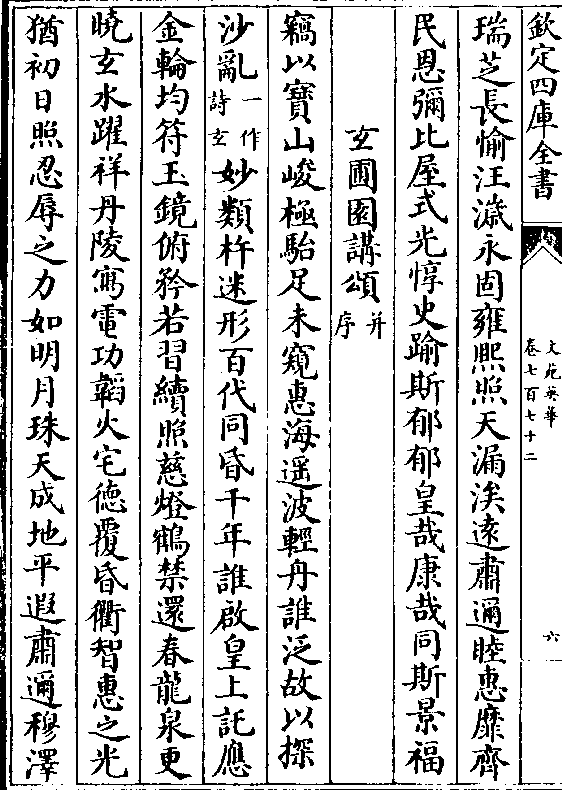 欽定四庫全書
文苑英華
卷七百七十二
六
瑞芝長愉汪濊永固雍熙照天漏涘遠肅邇睦惠靡齊
民恩彌比屋式光惇史踰斯郁郁皇哉康哉同斯景福
玄圃園講頌并序
竊以寶山峻極駘足未窺惠海遥波輕舟誰泛故以探
沙亂一作詩玄妙類杵迷形百代同昏千年誰啟皇上託應
金輪均符玉鏡俯矜若習續照慈燈鶴禁還春龍泉更
曉玄水躍祥丹陵寫電功韜火宅德覆昏衢智惠之光
猶初日照忍辱之力如明月珠天成地平遐肅邇穆澤